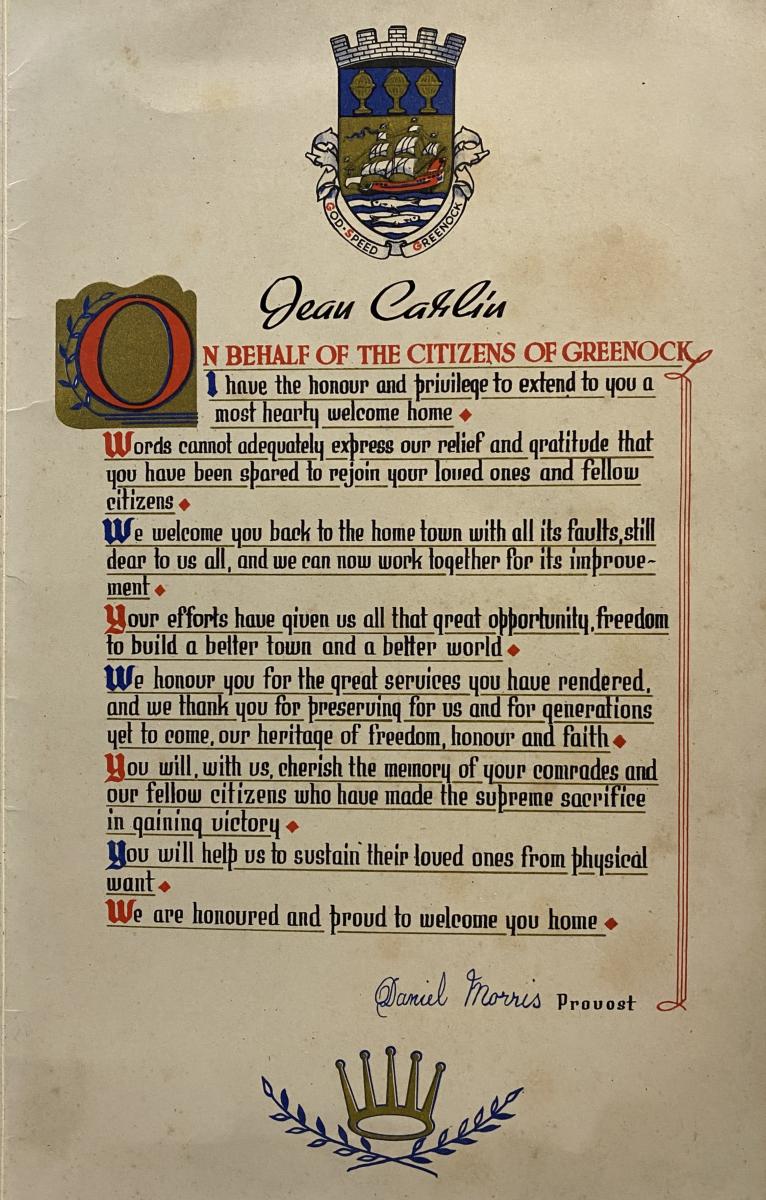 GOD-SPEED GREENOCK
Jean Catlin
ON BEHALF OF THE CITIZENS OF GREENOCK
I have the honour and privilege to extend to you a
most hearty welcome home
Words cannot adequately express our relief and gratitude that
you have been spared to rejoin your loved ones and fellow
citizens
We welcome you back to the home town with all its faults, still
dear to us all, and we can now work together for its improve-
ment
Your efforts have given us all that great opportunity, freedom
to build a better town and a better world
We honour you for the great services you have rendered,
and we thank you for preserving for us and for generations
yet to come, our heritage of freedom, honour and faith
You will, with us, cherish the memory of your comrades and
our fellow citizens who have made the supreme sacrifice
in gaining victory
You will help us to sustain their loved ones from physical
want
We are honoured and proud to welcome you home
Daniel Morris Provost